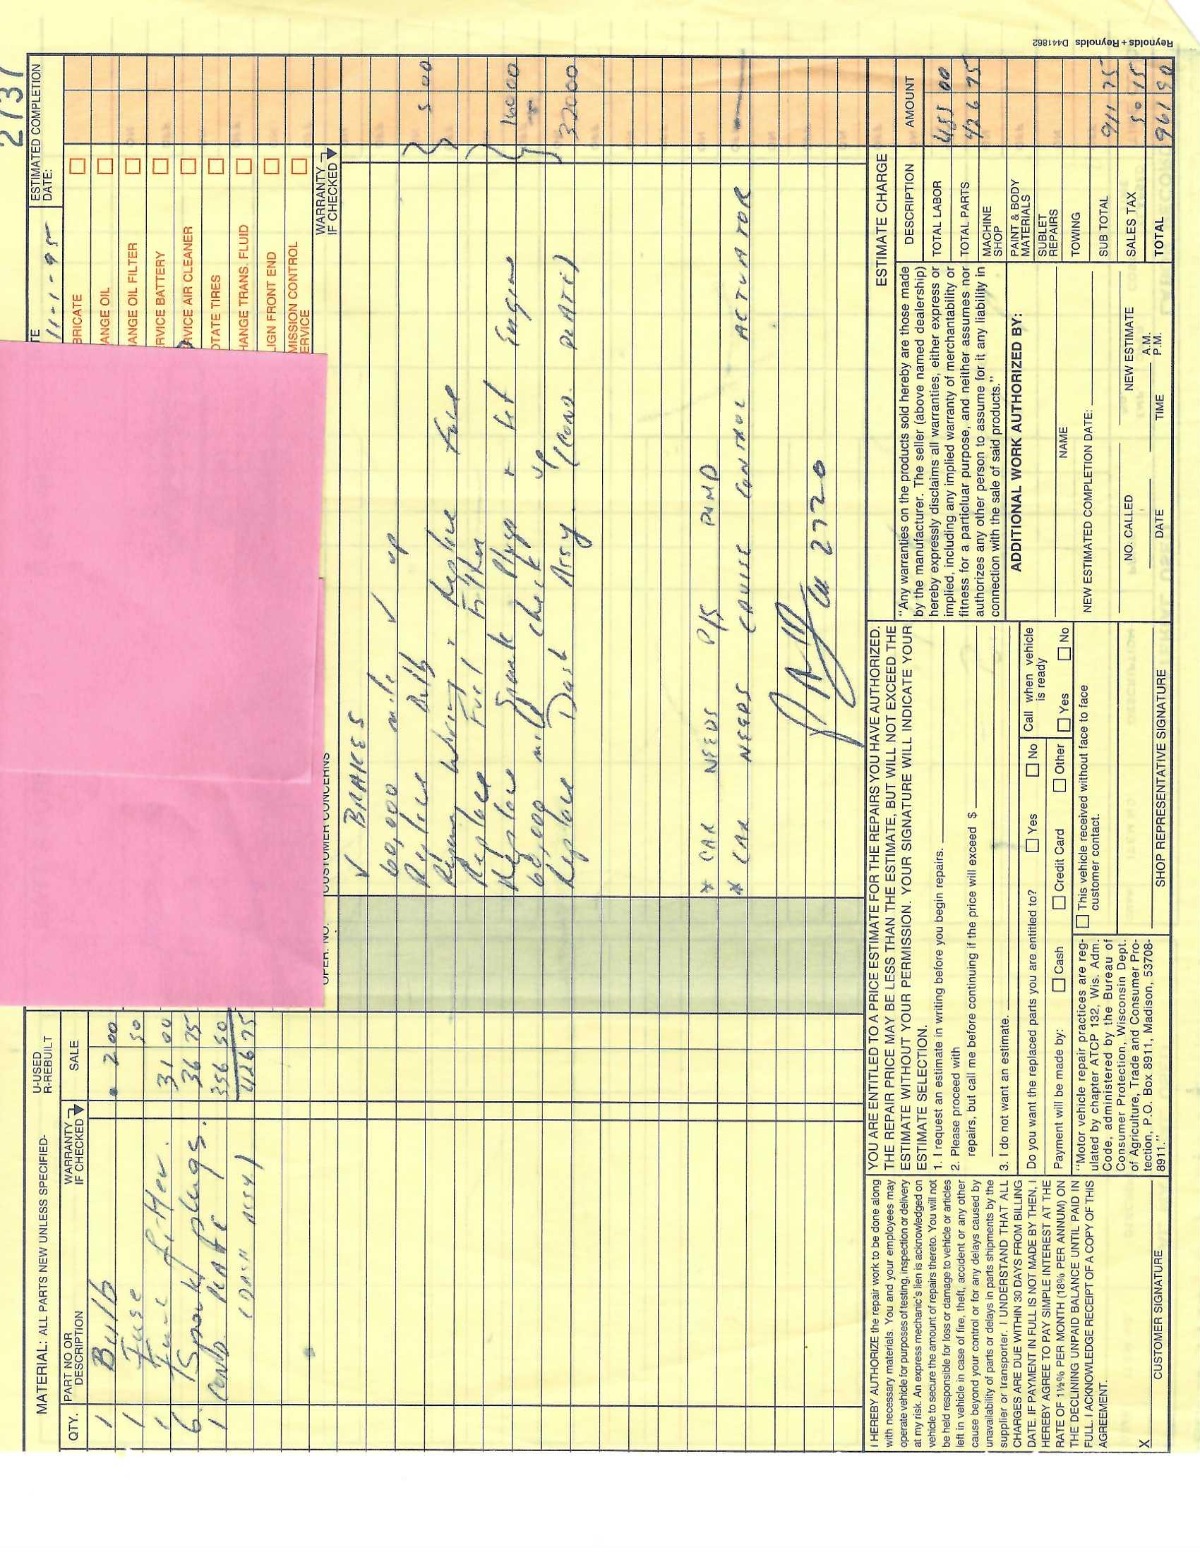 2737
MATERIAL: ALL PARTS NEW UNLESS SPECIFIED-
U-USED
R-REBUILT
QTY.
PART NO OR
DESCRIPTION
WARRANTY
IF CHECKED
SALE
1 Bulb 2 00
1 Fuse 50
1 Fuel filter. 31 00
6 Spark plugs. 36 75
1 COND PLATE 356 50
(DASH ASSY) 426 75
TE
11-1-95
ESTIMATED COMPLETION
DATE:
BRICATE
ANGE OIL
HANGE OIL FILTER
RVICE BATTERY
RVICE AIR CLEANER
OTATE TIRES
HANGE TRANS. FLUID
LIGN FRONT END
MISSION CONTROL
ERVICE
OPER. NO.
CUSTOMER CONCERNS
WARRANTY
IF CHECKED
✓ BRAKES
60,000 mile ✓ up
Replace Bulb 5 00
Repair Wiring + Replace Fuse
Replace Fuel Filter
Replace Spark Plugs + Set Engine 160 00
60,000 mile check up
Replace Dash Assy. (COND. PLATE) 320 00
* CAR NEEDS P/S PUMP
* CAR NEEDS CRUISE CONTROL ACTUATOR
2720
I HEREBY AUTHORIZE the repair work to be done along
with necessary materials. You and your employees may
operate vehicle for purposes of testing, inspection or delivery
at my risk. An express mechanic's lien is acknowledged on
vehicle to secure the amount of repairs thereto. You will not
be held responsible for loss or damage to vehicle or articles
left in vehicle in case of fire, theft, accident or any other
cause beyond your control or for any delays caused by
unavailability of parts or delays in parts shipments by the
supplier or transporter. I UNDERSTAND THAT ALL
CHARGES ARE DUE WITHIN 30 DAYS FROM BILLING
DATE. IF PAYMENT IN FULL IS NOT MADE BY THEN, I
HEREBY AGREE TO PAY SIMPLE INTEREST AT THE
RATE OF 1½% PER MONTH (18% PER ANNUM) ON
THE DECLINING UNPAID BALANCE UNTIL PAID IN
FULL. I ACKNOWLEDGE RECEIPT OF A COPY OF THIS
AGREEMENT.
X
CUSTOMER SIGNATURE
YOU ARE ENTITLED TO A PRICE ESTIMATE FOR THE REPAIRS YOU HAVE AUTHORIZED.
THE REPAIR PRICE MAY BE LESS THAN THE ESTIMATE, BUT WILL NOT EXCEED THE
ESTIMATE WITHOUT YOUR PERMISSION. YOUR SIGNATURE WILL INDICATE YOUR
ESTIMATE SELECTION.
1. I request an estimate in writing before you begin repairs.
2. Please proceed with
repairs, but call me before continuing if the price will exceed $
3. I do not want an estimate.
Do you want the replaced parts you are entitled to? Yes No
Payment will be made by: Cash Credit Card Other
Call when vehicle
is ready
Yes No
"Motor vehicle repair practices are reg-
ulated by chapter ATCP 132, Wis. Adm.
Code, administered by the Bureau of
Consumer Protection, Wisconsin Dept.
of Agriculture, Trade and Consumer Pro-
tection, P.O. Box 8911, Madison, 53708-
8911."
This vehicle received without face to face
customer contact.
SHOP REPRESENTATIVE SIGNATURE
"Any warranties on the products sold hereby are those made
by the manufacturer. The seller (above named dealership)
hereby expressly disclaims all warranties, either express or
implied, including any implied warranty of merchantability or
fitness for a particluar purpose, and neither assumes nor
authorizes any other person to assume for it any liability in
connection with the sale of said products."
ADDITIONAL WORK AUTHORIZED BY:
NAME
NEW ESTIMATED COMPLETION DATE:
NO. CALLED
NEW ESTIMATE
DATE
TIME
A.M.
P.M.
ESTIMATE CHARGE
DESCRIPTION AMOUNT
TOTAL LABOR 485 00
TOTAL PARTS 426 75
MACHINE
SHOP
PAINT & BODY
MATERIALS
SUBLET
REPAIRS
TOWING
SUB TOTAL 911 75
SALES TAX 50 15
TOTAL 961 90
Reynolds + Reynolds D441862